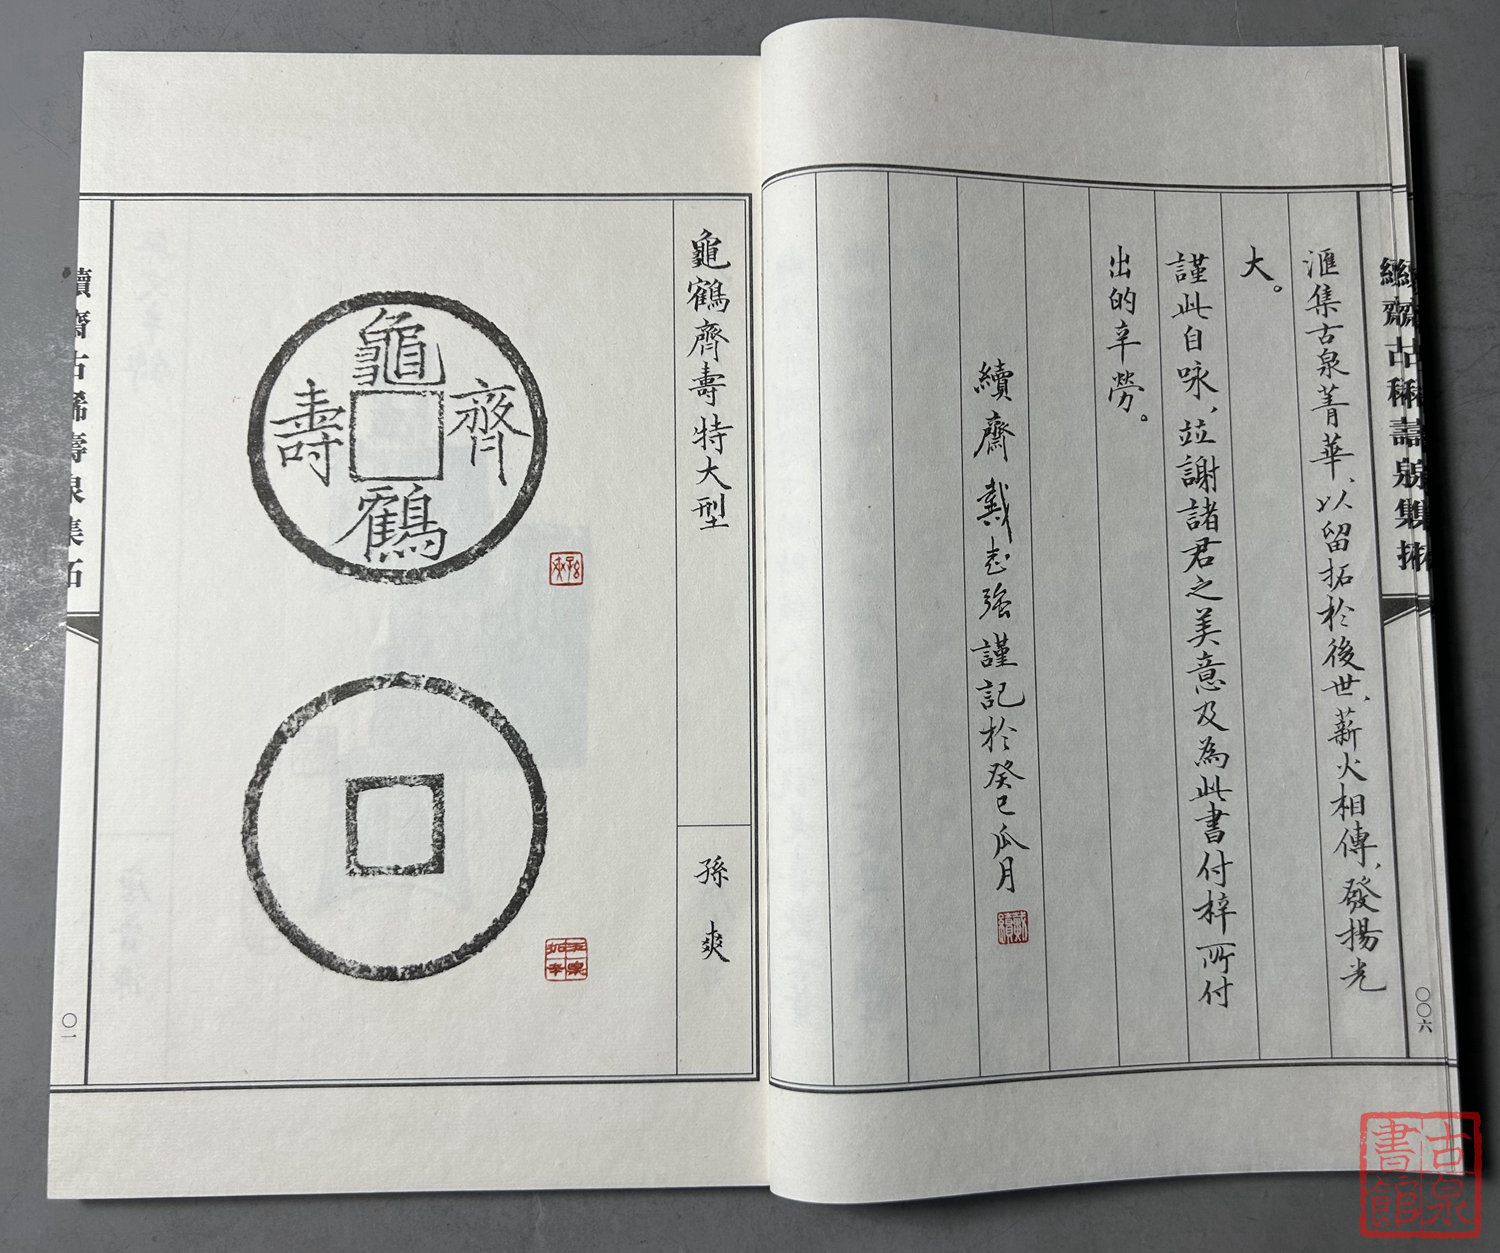 匯集古泉菁華、以留拓於後世、薪火相傳、發揚光
大。
謹此自咏、竝謝諸君之美意及為此書付梓所付
出的辛勞。
續齋戴志強謹記於癸巳瓜月
戴續
〇〇六
龜鶴齊壽特大型
孫爽
龜鶴齊壽
續齋古稀壽泉集拓
〇一
古泉書館